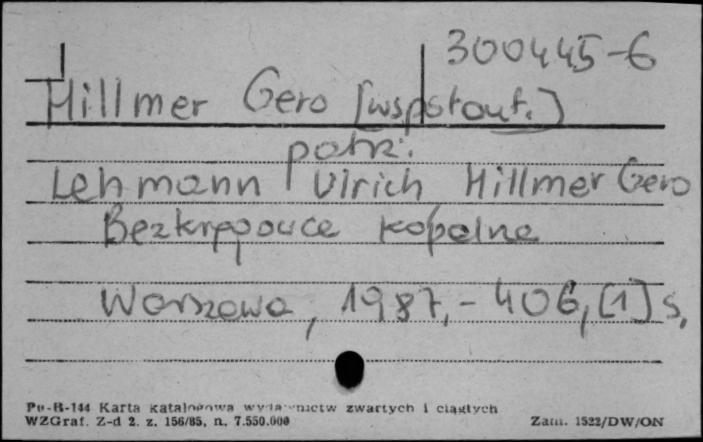 300445-6
Hillmer Gero [wspołaut.]
patrz:
Lehmann Ulrich Hillmer Gero
Bezkręgowce kopalne
Warszawa, 1987, - 406, [1] s.
Pu-B-144 Karta katalogowa wydawnictw zwartych i ciągłych
WZGraf. Z-d 2. z. 156/85, n. 7.550.000 Zam. 1522/DW/ON